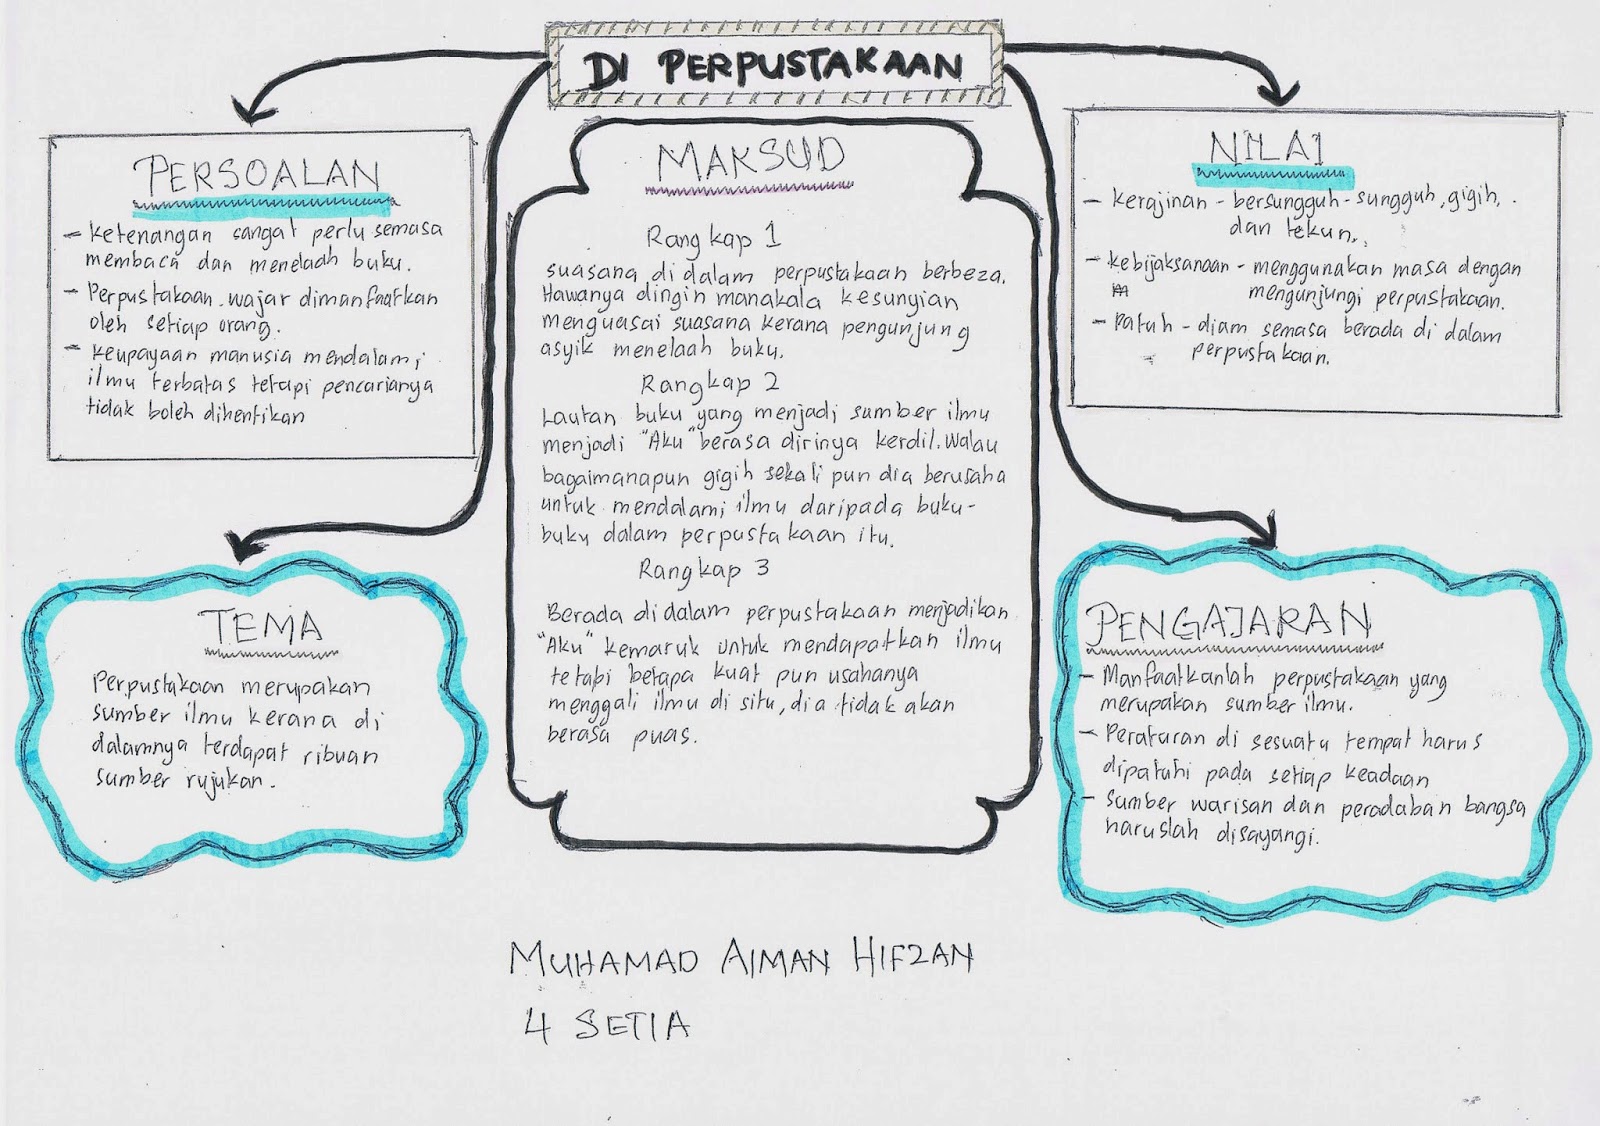 DI PERPUSTAKAAN
PERSOALAN
- Ketenangan sangat perlu semasa
membaca dan menelaah buku.
- Perpustakaan wajar dimanfaatkan
oleh setiap orang.
- Keupayaan manusia mendalami
ilmu terbatas tetapi pencarianya
tidak boleh dihentikan
MAKSUD
Rangkap 1
suasana di dalam perpustakaan berbeza.
Hawanya dingin manakala kesunyian
menguasai suasana kerana pengunjung
asyik menelaah buku.
Rangkap 2
Lautan buku yang menjadi sumber ilmu
menjadi "Aku" berasa dirinya kerdil. Walau
bagaimanapun gigih sekali pun dia berusaha
untuk mendalami ilmu daripada buku-
buku dalam perpustakaan itu.
Rangkap 3
Berada di dalam perpustakaan menjadikan
"Aku" kemaruk untuk mendapatkan ilmu
tetapi betapa kuat pun usahanya
menggali ilmu di situ, dia tidak akan
berasa puas.
NILAI
- Kerajinan - bersungguh-sungguh, gigih,
dan tekun.
- Kebijaksanaan - menggunakan masa dengan
mengunjungi perpustakaan.
- Patuh - diam semasa berada di dalam
perpustakaan.
TEMA
Perpustakaan merupakan
sumber ilmu kerana di
dalamnya terdapat ribuan
sumber rujukan.
PENGAJARAN
- Manfaatkanlah perpustakaan yang
merupakan sumber ilmu.
- Peraturan di sesuatu tempat harus
dipatuhi pada setiap keadaan
- Sumber warisan dan peradaban bangsa
haruslah disayangi.
MUHAMAD AIMAN HIFZAN
4 SETIA